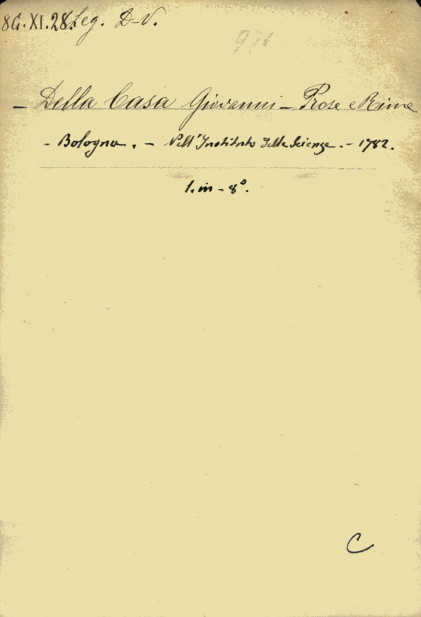 8G.XI.28. Leg. D-V.
- Della Casa Giovanni - Prose e Rime
- Bologna. - Nell'Instituto delle Scienze. - 1782.
1. in - 8º.
C